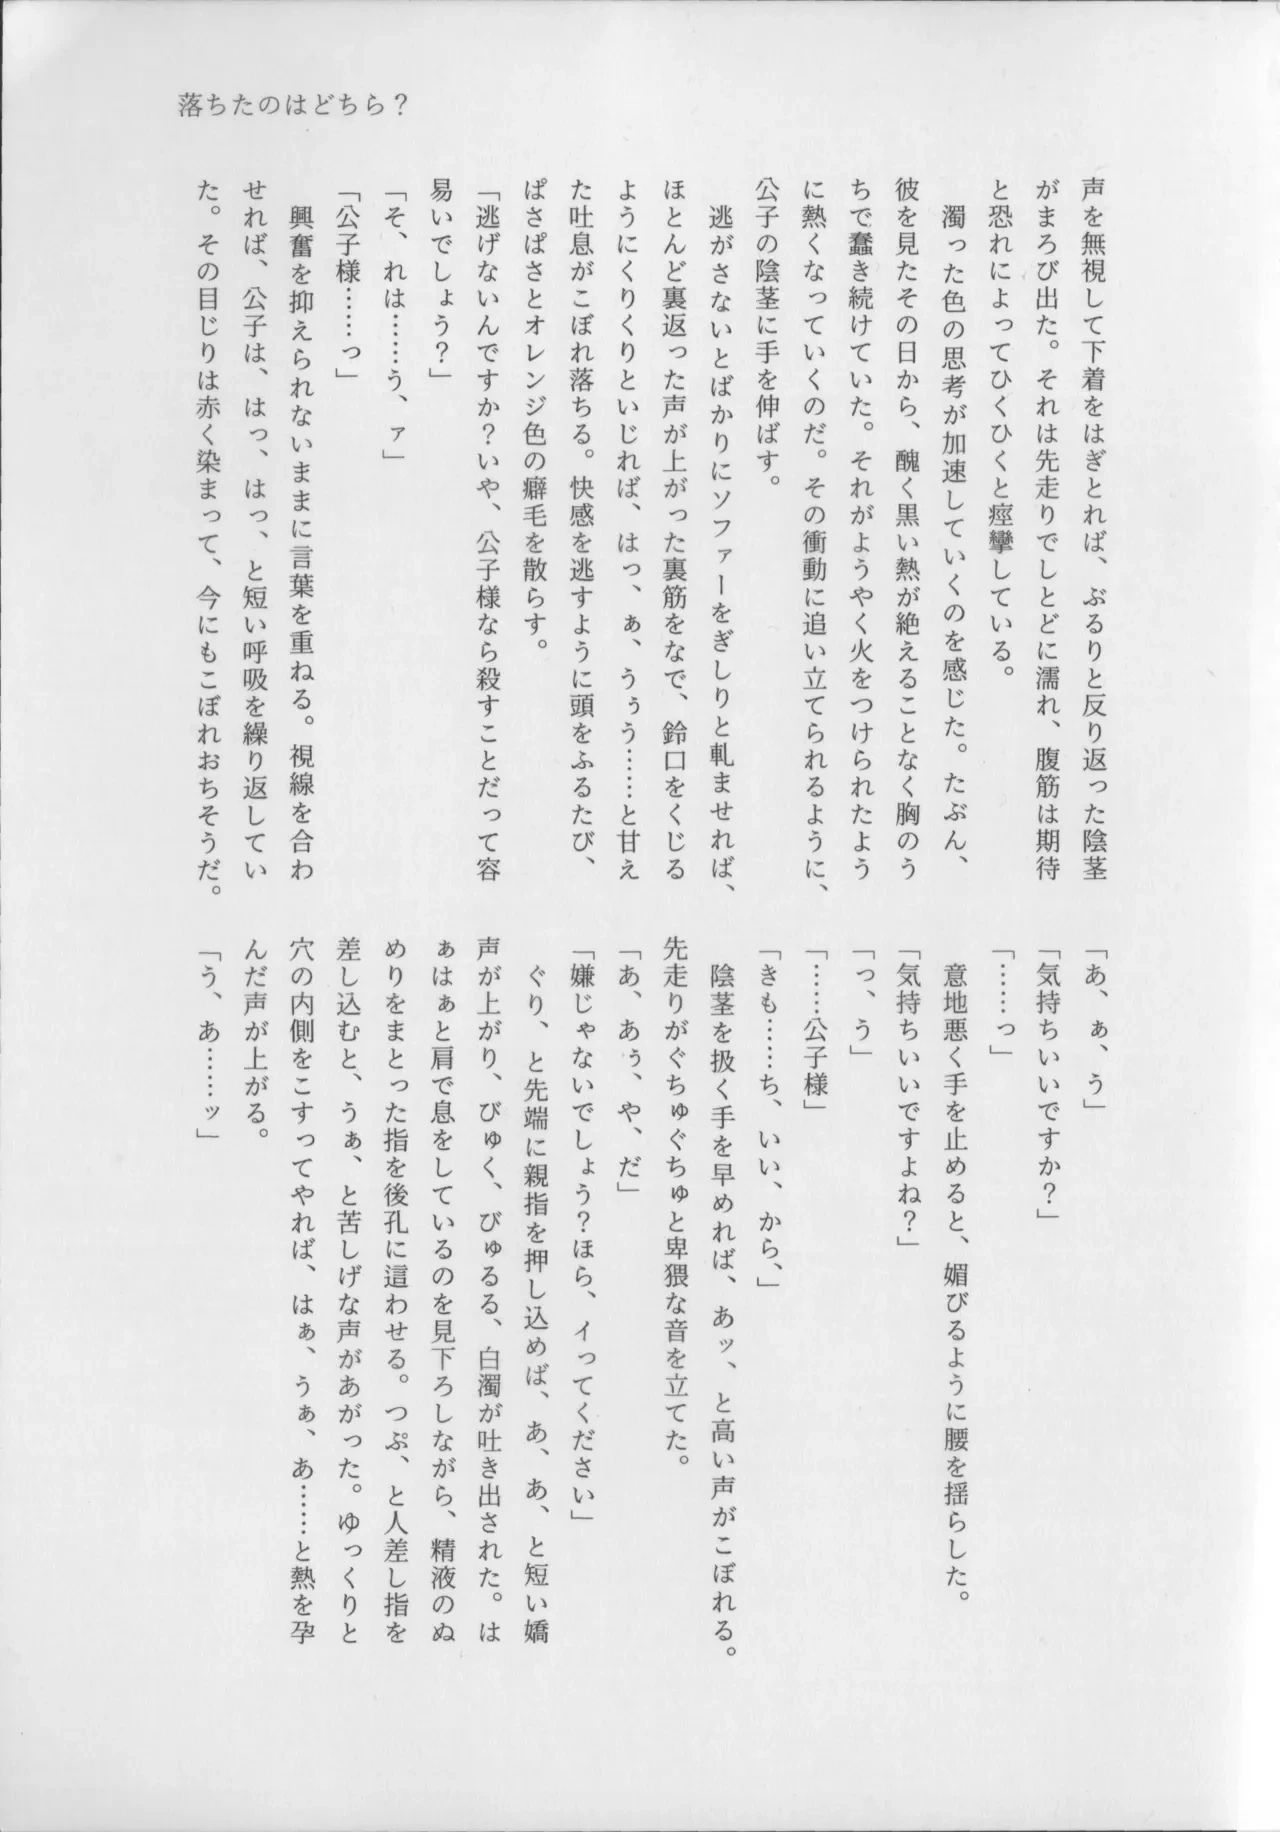 落ちたのはどちら？
声を無視して下着をはぎとれば、ぶるりと反り返った陰茎
がまろび出た。それは先走りでしとどに濡れ、腹筋は期待
と恐れによってひくひくと痙攣している。
　濁った色の思考が加速していくのを感じた。たぶん、
彼を見たその日から、醜く黒い熱が絶えることなく胸のう
ちで蠢き続けていた。それがようやく火をつけられたよう
に熱くなっていくのだ。その衝動に追い立てられるように、
公子の陰茎に手を伸ばす。
　逃がさないとばかりにソファーをぎしりと軋ませれば、
ほとんど裏返った声が上がった裏筋をなで、鈴口をくじる
ようにくりくりといじれば、はっ、ぁ、うぅう……と甘え
た吐息がこぼれ落ちる。快感を逃すように頭をふるたび、
ぱさぱさとオレンジ色の癖毛を散らす。
「逃げないんですか？いや、公子様なら殺すことだって容
易いでしょう？」
「そ、れは……う、ァ」
「公子様……っ」
　興奮を抑えられないままに言葉を重ねる。視線を合わ
せれば、公子は、はっ、はっ、と短い呼吸を繰り返してい
た。その目じりは赤く染まって、今にもこぼれおちそうだ。
「あ、ぁ、う」
「気持ちいいですか？」
「……っ」
　意地悪く手を止めると、媚びるように腰を揺らした。
「気持ちいいですよね？」
「っ、う」
「……公子様」
「きも……ち、いい、から、」
　陰茎を扱く手を早めれば、あッ、と高い声がこぼれる。
先走りがぐちゅぐちゅと卑猥な音を立てた。
「あ、あぅ、や、だ」
「嫌じゃないでしょう？ほら、イってください」
　ぐり、と先端に親指を押し込めば、あ、あ、と短い嬌
声が上がり、びゅく、びゅるる、白濁が吐き出された。は
ぁはぁと肩で息をしているのを見下ろしながら、精液のぬ
めりをまとった指を後孔に這わせる。つぷ、と人差し指を
差し込むと、うぁ、と苦しげな声があがった。ゆっくりと
穴の内側をこすってやれば、はぁ、うぁ、あ……と熱を孕
んだ声が上がる。
「う、あ……ッ」